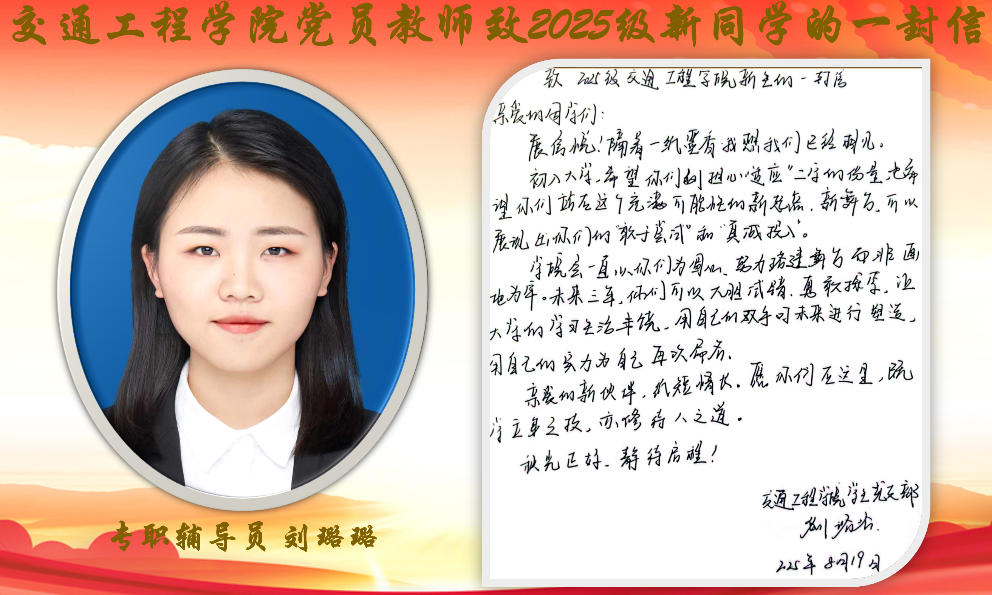 交通工程学院党员教师致2025级新同学的一封信
致 2025级交通工程学院新生的一封信
亲爱的同学们:
展信悦!隔着一纸墨香我想我们已经相见。
初入大学,希望你们别担心"适应"二字的份量,也希
望你们站在这个充满可能性的新起点、新舞台,可以
展现出你们的"敢于尝试"和"真诚投入"。
学院会一直以你们为圆心,努力搭建舞台而非画
地为牢。未来三年,你们可以大胆试错、勇敢探索,让
大学的学习生活丰饶,用自己的双手对未来进行塑造,
用自己的实力为自己再次命名。
亲爱的新伙伴,纸短情长。愿你们在这里,既
学立身之技,亦修待人之道。
秋光正好,静待启程!
交通工程学院学生党支部
刘璐璐
2025年8月19日
专职辅导员 刘璐璐